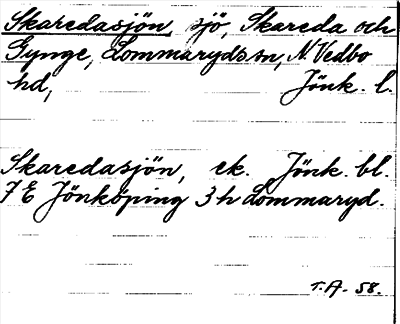 Skaredasjön, sjö, Skareda och
Gynge, Lommaryds sn, N. Vedbo
hd, Jönk. l.
Skaredasjön, ek. Jönk. bl.
7E Jönköping 3h Lommaryd.
T.A. 58.